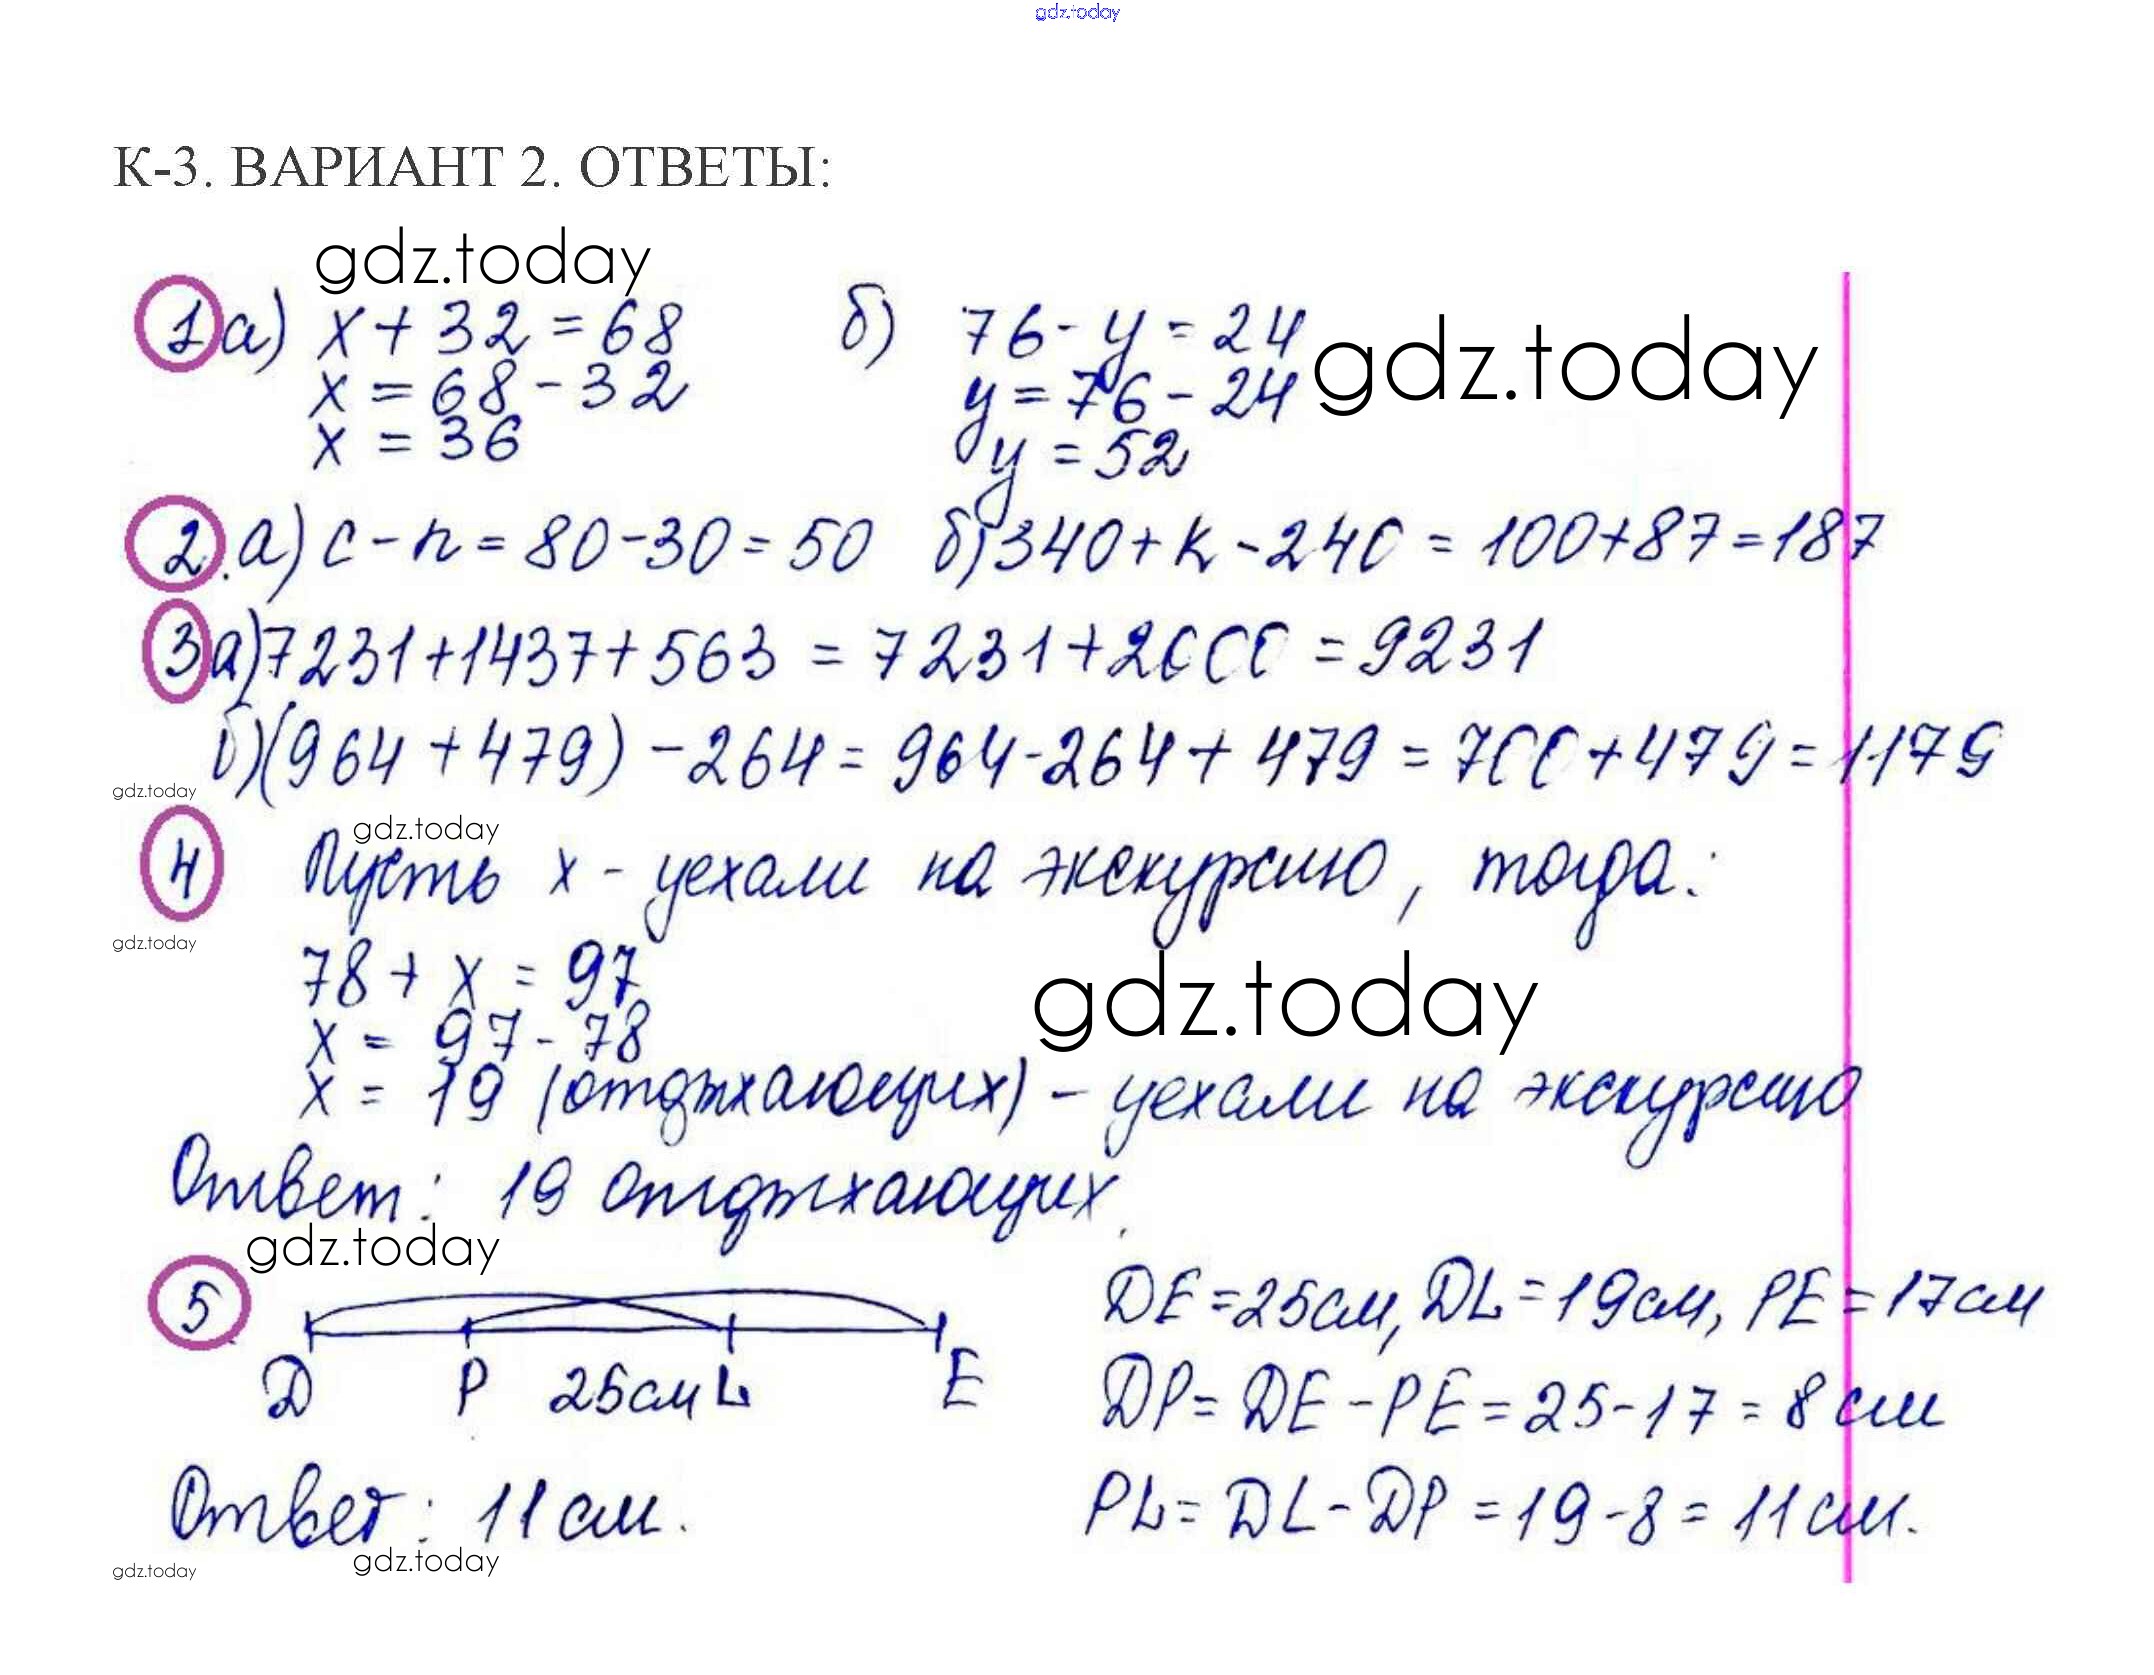 gdz.today
К-3. ВАРИАНТ 2. ОТВЕТЫ:
gdz.today
1 а) x + 32 = 68 б) 76 - y = 24
gdz.today
x = 68 - 32 y = 76 - 24
x = 36 y = 52
2. а) c - n = 80 - 30 = 50 б) 340 + k - 240 = 100 + 87 = 187
3 а) 7231 + 1437 + 563 = 7231 + 2000 = 9231
б) (964 + 479) - 264 = 964 - 264 + 479 = 700 + 479 = 1179
gdz.today
gdz.today
4 Пусть x - уехали на экскурсию, тогда:
gdz.today
78 + x = 97
gdz.today
x = 97 - 78
x = 19 (отдыхающих) - уехали на экскурсию
Ответ: 19 отдыхающих.
gdz.today
5 DE = 25 см, DL = 19 см, PE = 17 см
D P 25 см L E
DP = DE - PE = 25 - 17 = 8 см
Ответ: 11 см. PL = DL - DP = 19 - 8 = 11 см.
gdz.today
gdz.today